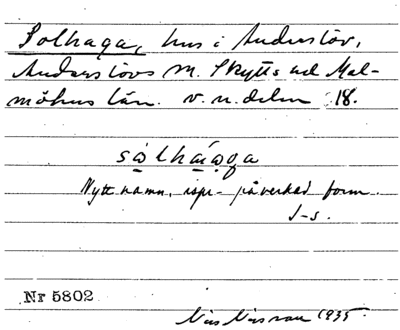 Solhaga, hus i Anderslöv,
Anderslövs sn. Skytts hd Mal-
möhus län. v. n. delen 18.
sólhága
Nytt namn, rspr-påverkad form.
J-s.
Nr 5802
Nils Nilsson 1935